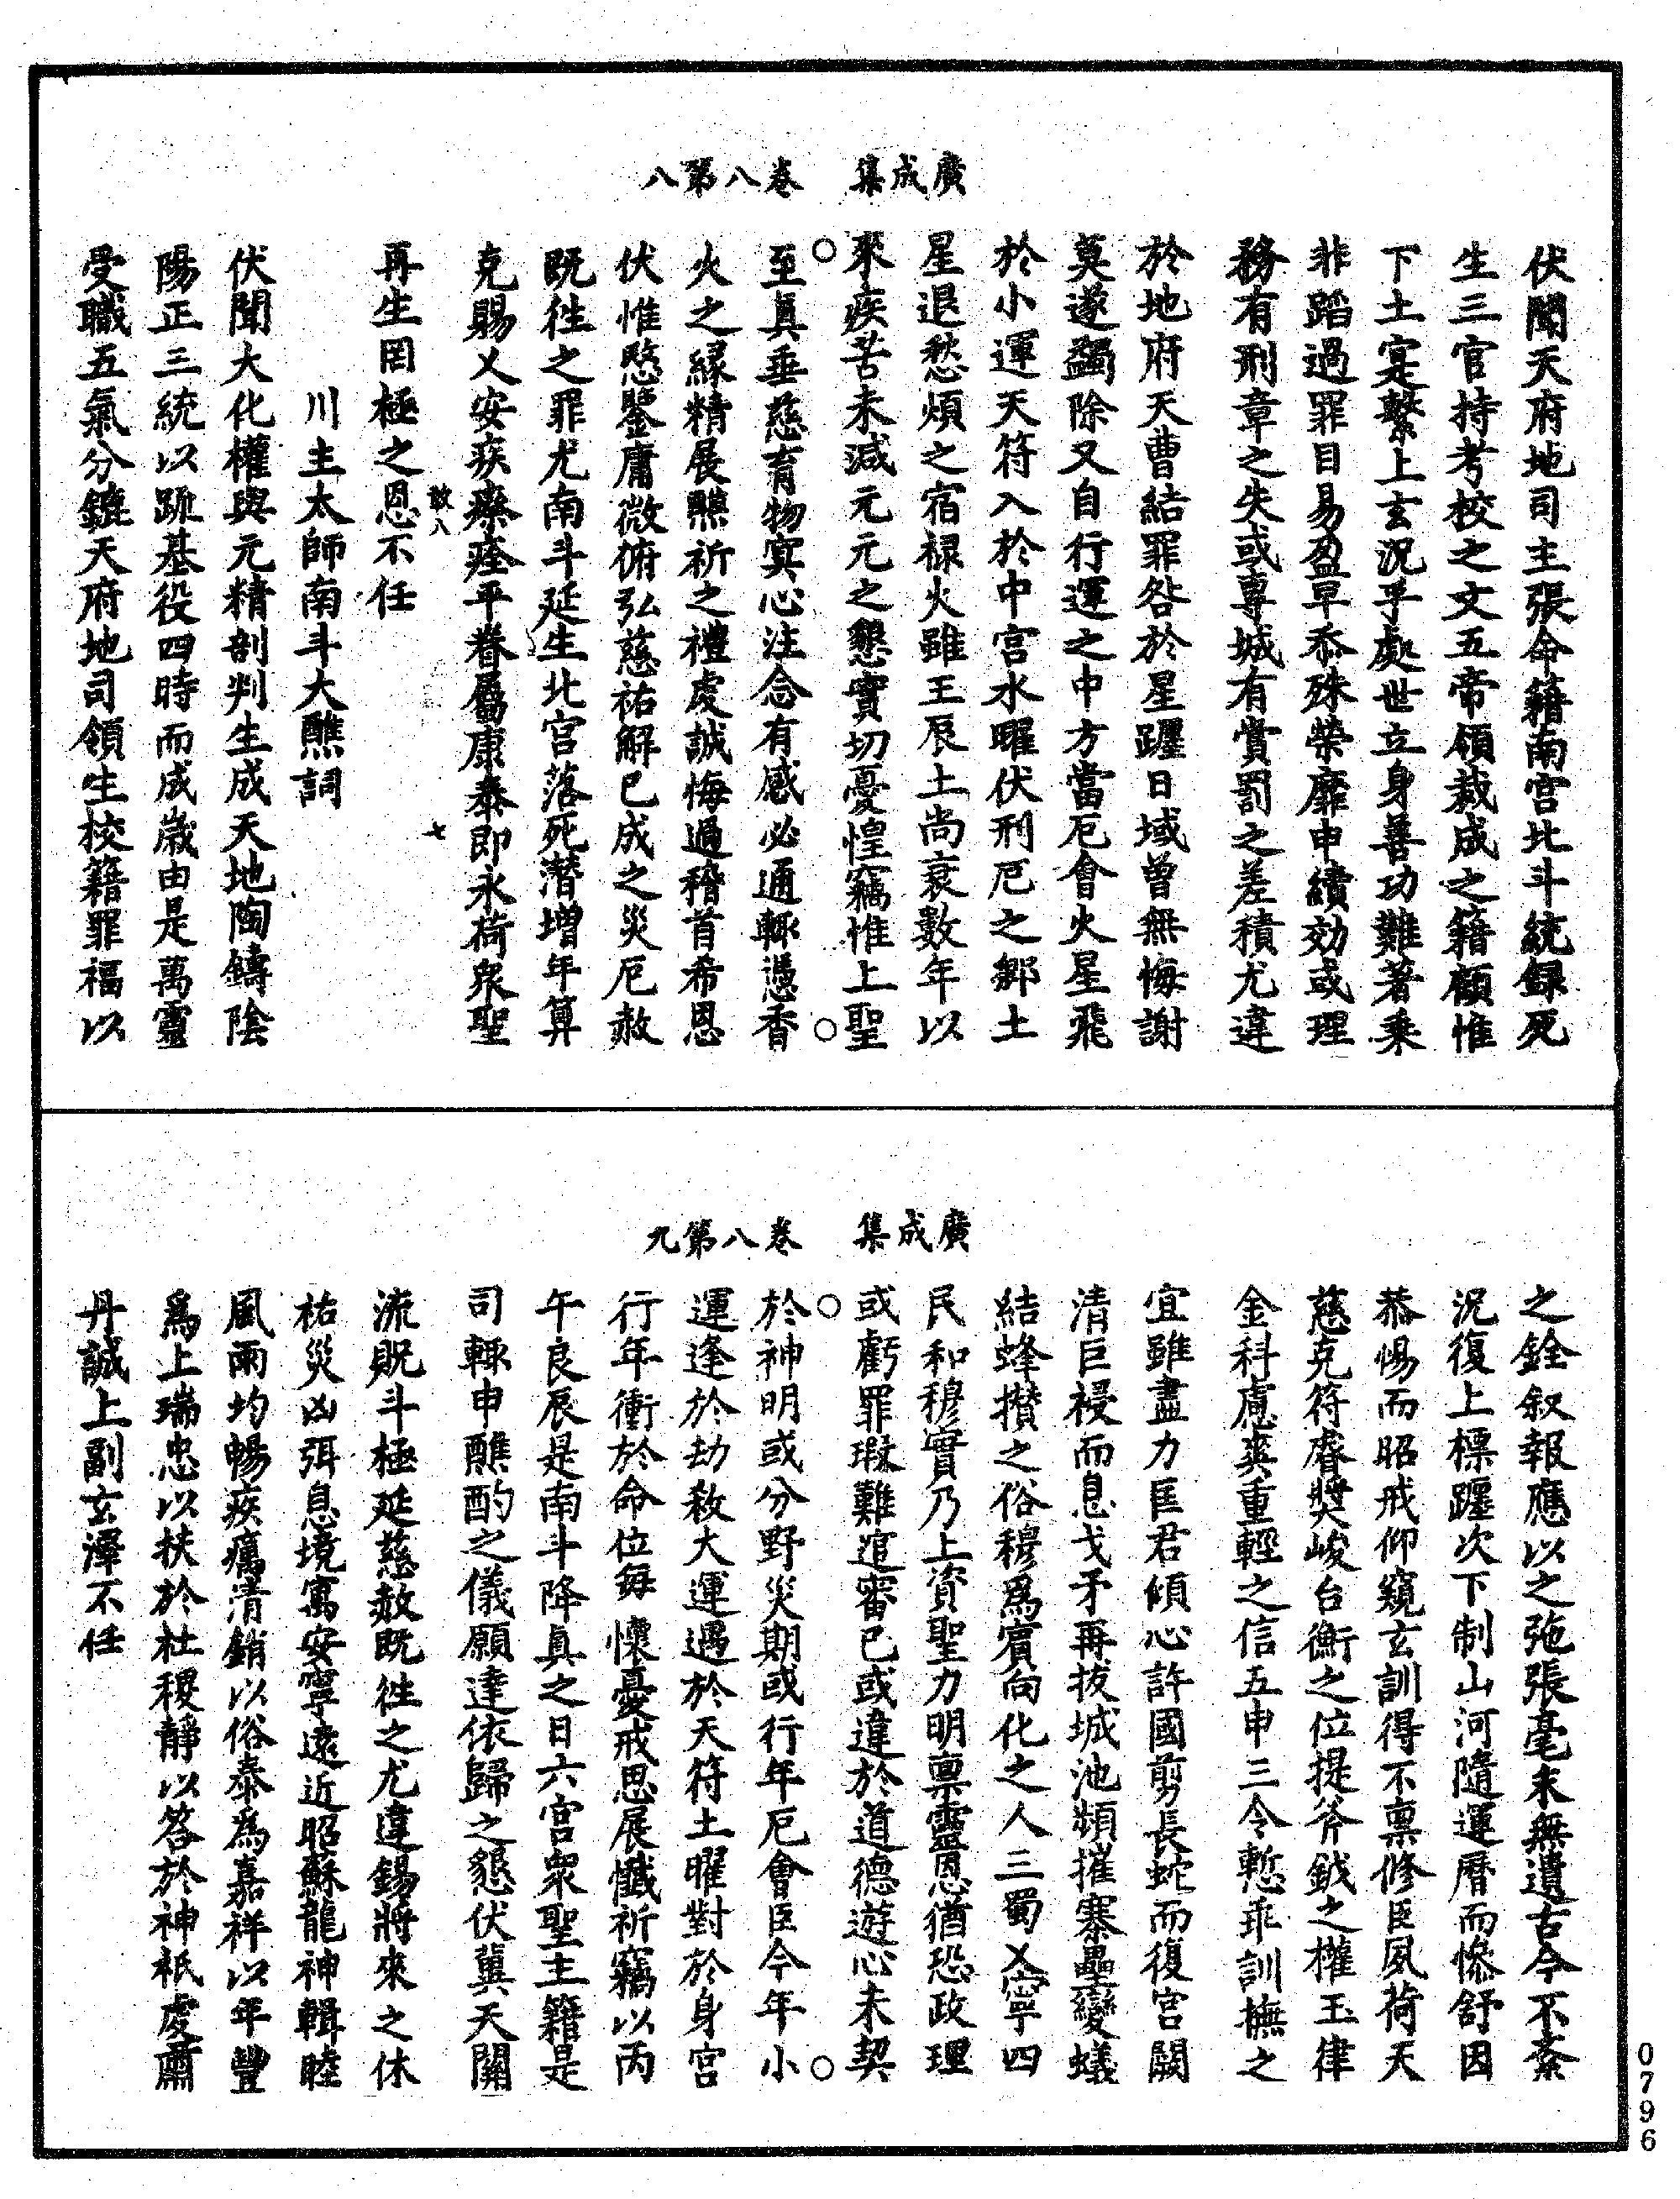 廣成集　卷八第八
伏聞天府地司主張命籍南宮北斗統録死
生三官持考校之文五帝領裁成之籍顧惟
下土寔繫上玄況乎處世立身善功難著乗
非蹈過罪目易盈早忝殊榮靡申績効或理
務有刑章之失或專城有賞罰之差積尤違
於地府天曹結罪咎於星躔日域曾無悔謝
莫遂蠲除又自行運之中方當厄會火星飛
於小運天符入於中宮水曜伏刑厄之鄉土
星退愁煩之宿禄火雖王辰土尚衰數年以
來疾苦未減元元之懇實切憂惶竊惟上聖
至真垂慈育物冥心注念有感必通輒憑香
火之緣精展醮祈之禮虔誠悔過稽首希恩
伏惟愍鑒庸微俯弘慈祐解已成之災厄赦
既徃之罪尤南斗延生北宮落死潜增年筭
克賜乂安疾療痊平眷屬康泰即永荷衆聖
再生罔極之恩不任
川主太師南斗大醮詞
伏聞大化權輿元精剖判生成天地陶鑄陰
陽正三統以䟽基役四時而成歲由是萬靈
受職五氣分鑣天府地司領生校籍罪福以
廣成集　卷八第九
之銓叙報應以之弛張毫末無遺古今不紊
況復上標躔次下制山河隨運曆而慘舒因
恭惕而昭戒仰窺玄訓得不稟修臣夙荷天
慈克符睿奬峻台衡之位提斧鉞之權玉律
金科慮爽重輕之信五申三令慙乖訓撫之
宜雖盡力匡君傾心許國剪長蛇而復宮闕
清巨祲而息戈矛再拔城池頻摧寨壘變蟻
結蜂攅之俗穆爲賓向化之人三蜀乂寧四
民和穆實乃上資聖力明稟靈恩猶恐政理
或虧罪瑕難逭審已或違於道德遊心未契
於神明或分野災期或行年厄會臣今年小
運逢於劫殺大運遇於天符土曜對於身宮
行年衝於命位每懷憂戒思展懺祈竊以丙
午良辰是南斗降真之日六宮衆聖主籍是
司輒申醮酌之儀願達依歸之懇伏冀天關
流貺斗極延慈赦既徃之尤違錫將來之休
祐災凶弭息境寓安寧遠近昭蘇龍神輯睦
風雨均暢疾癘清銷以俗泰爲嘉祥以年豐
爲上瑞忠以扶於社稷靜以答於神祇虔肅
丹誠上副玄澤不任
0796